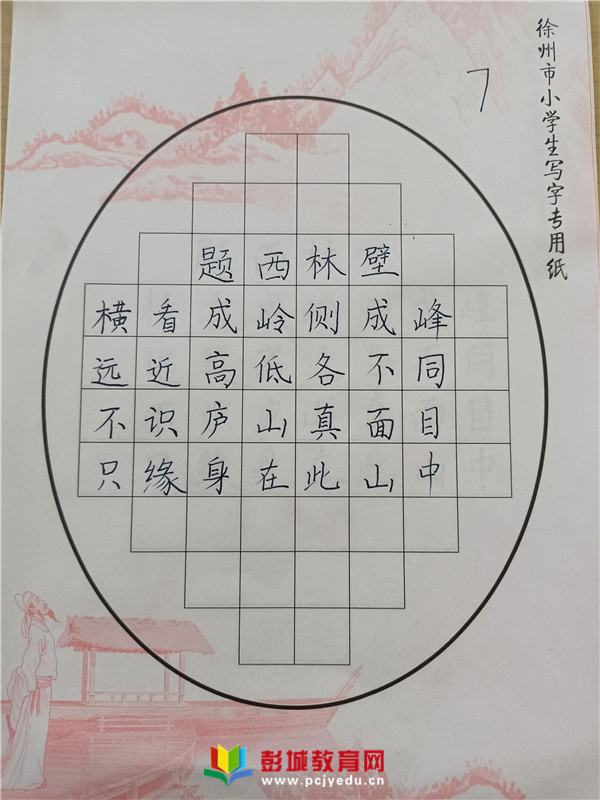 徐州市小学生写字专用纸
7
题西林壁
横看成岭侧成峰
远近高低各不同
不识庐山真面目
只缘身在此山中
彭城教育网
www.pcjyedu.cn